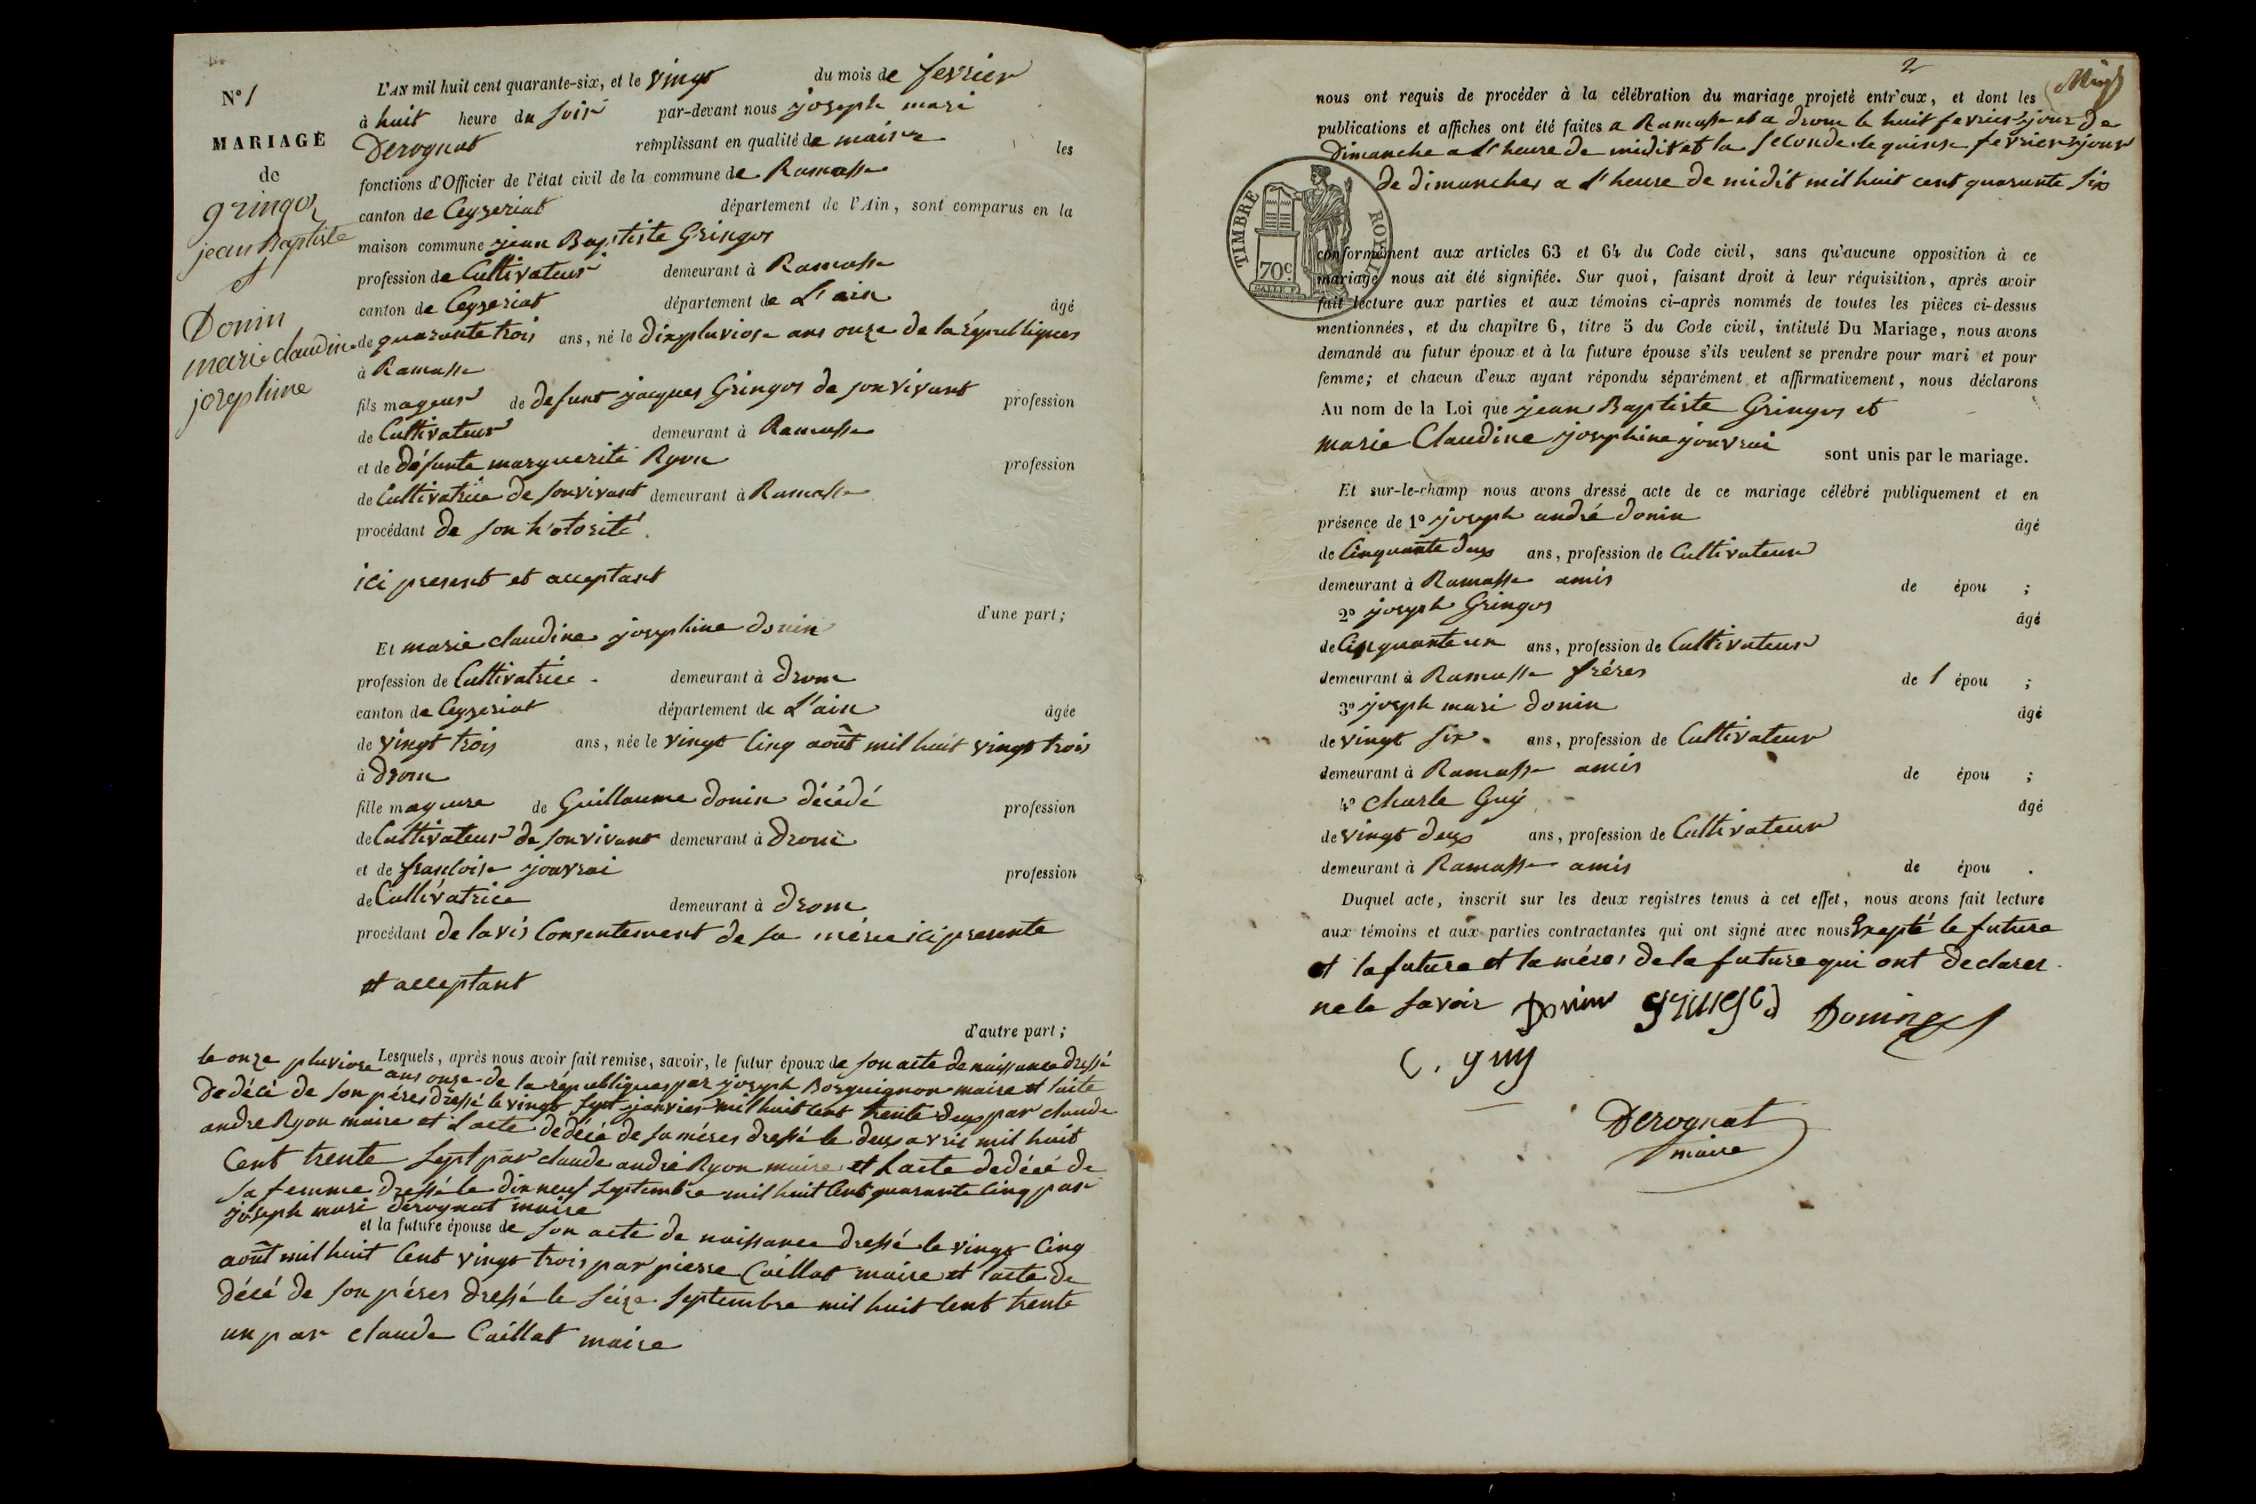 N° 1
MARIAGE
de
gringoz
jean Baptiste
et
Donin
marie claudine
josephine
L'AN mil huit cent quarante-six, et le vingt du mois de fevrier
à huit heure du soir par-devant nous joseph mari
Derognat remplissant en qualité de maire les
fonctions d'Officier de l'état civil de la commune de Ramasse
canton de Ceyzeriat département de l'Ain, sont comparus en la
maison commune jean Baptiste Gringoz
profession de Cultivateur demeurant à Ramasse
canton de Ceyzeriat département de L'ain âgé
de quarante trois ans, né le dix pluviose ans onze de la républiques
à Ramasse
fils mageur de defunt jacques Gringoz de son vivant profession
de Cultivateur demeurant à Ramasse
et de défunte marguerite Ryon profession
de Cultivatrice de son vivant demeurant à Ramasse
procédant de son h'otorité
ici present et acceptant
d'une part;
Et marie claudine josephine donin
profession de Cultivatrice demeurant à drom
canton de Ceyzeriat département de L'ain âgée
de vingt trois ans, née le vingt cinq août mil huit vingt trois
à drom
fille mageure de Guillaume donin décédé profession
de Cultivateur de son vivant demeurant à drom
et de francoise jouvrai profession
de Cultivatrice demeurant à drom
procédant de lavis Consentement de sa mére ici presente
et acceptant
d'autre part;
Lesquels, après nous avoir fait remise, savoir, le futur époux de son acte de naissance dressé
le onze pluviose ans onze de la républiques par joseph Borguignon maire et l'acte
de décé de son péres dressé le vingt sept janvier mil huit cent trente deux par claude
andre Ryon maire et l'acte de décé de sa méres dressé le deux avril mil huit
cent trente sept par claude andré Ryon maire et l'acte de décé de
sa femme dressé le dix neuf septembre mil huit cent quarante cinq par
joseph mari derognat maire
et la future épouse de son acte de naissance dressé le vingt cinq
août mil huit cent vingt trois par pierre Caillat maire et l'acte de
décé de son péres dressé le seize septembre mil huit cent trente
un par claude Caillat maire
2
nous ont requis de procéder à la célébration du mariage projeté entr'eux, et dont les
publications et affiches ont été faites a Ramasse et a drom le huit fevrier jour de
dimanche a l'heure de midit et la seconde le quinse fevrier jour
de dimanches a l'heure de midit mil huit cent quarante six
TIMBRE ROYAL
70c
conformément aux articles 63 et 64 du Code civil, sans qu'aucune opposition à ce
mariage nous ait été signifiée. Sur quoi, faisant droit à leur réquisition, après avoir
fait lecture aux parties et aux témoins ci-après nommés de toutes les pièces ci-dessus
mentionnées, et du chapitre 6, titre 5 du Code civil, intitulé Du Mariage, nous avons
demandé au futur époux et à la future épouse s'ils veulent se prendre pour mari et pour
femme; et chacun d'eux ayant répondu séparément et affirmativement, nous déclarons
Au nom de la Loi que jean Baptiste Gringoz et
marie Claudine josephine jouvrai sont unis par le mariage.
Et sur-le-champ nous avons dressé acte de ce mariage célébré publiquement et en
présence de 1° joseph andré donin âgé
de Cinquante deux ans, profession de Cultivateur
demeurant à Ramasse amis de épou ;
2° joseph Gringoz âgé
de Cinquante un ans, profession de Cultivateur
demeurant à Ramasse fréres de l épou ;
3° joseph mari donin âgé
de vingt six ans, profession de Cultivateur
demeurant à Ramasse amis de épou ;
4° charle Guy âgé
de vingt deux ans, profession de Cultivateur
demeurant à Ramasse amis de épou .
Duquel acte, inscrit sur les deux registres tenus à cet effet, nous avons fait lecture
aux témoins et aux parties contractantes qui ont signé avec nous Exepté le future
et la future et la méres de la future qui ont declarer
ne le savoir Donin Donin
C. guy
Derognat
maire